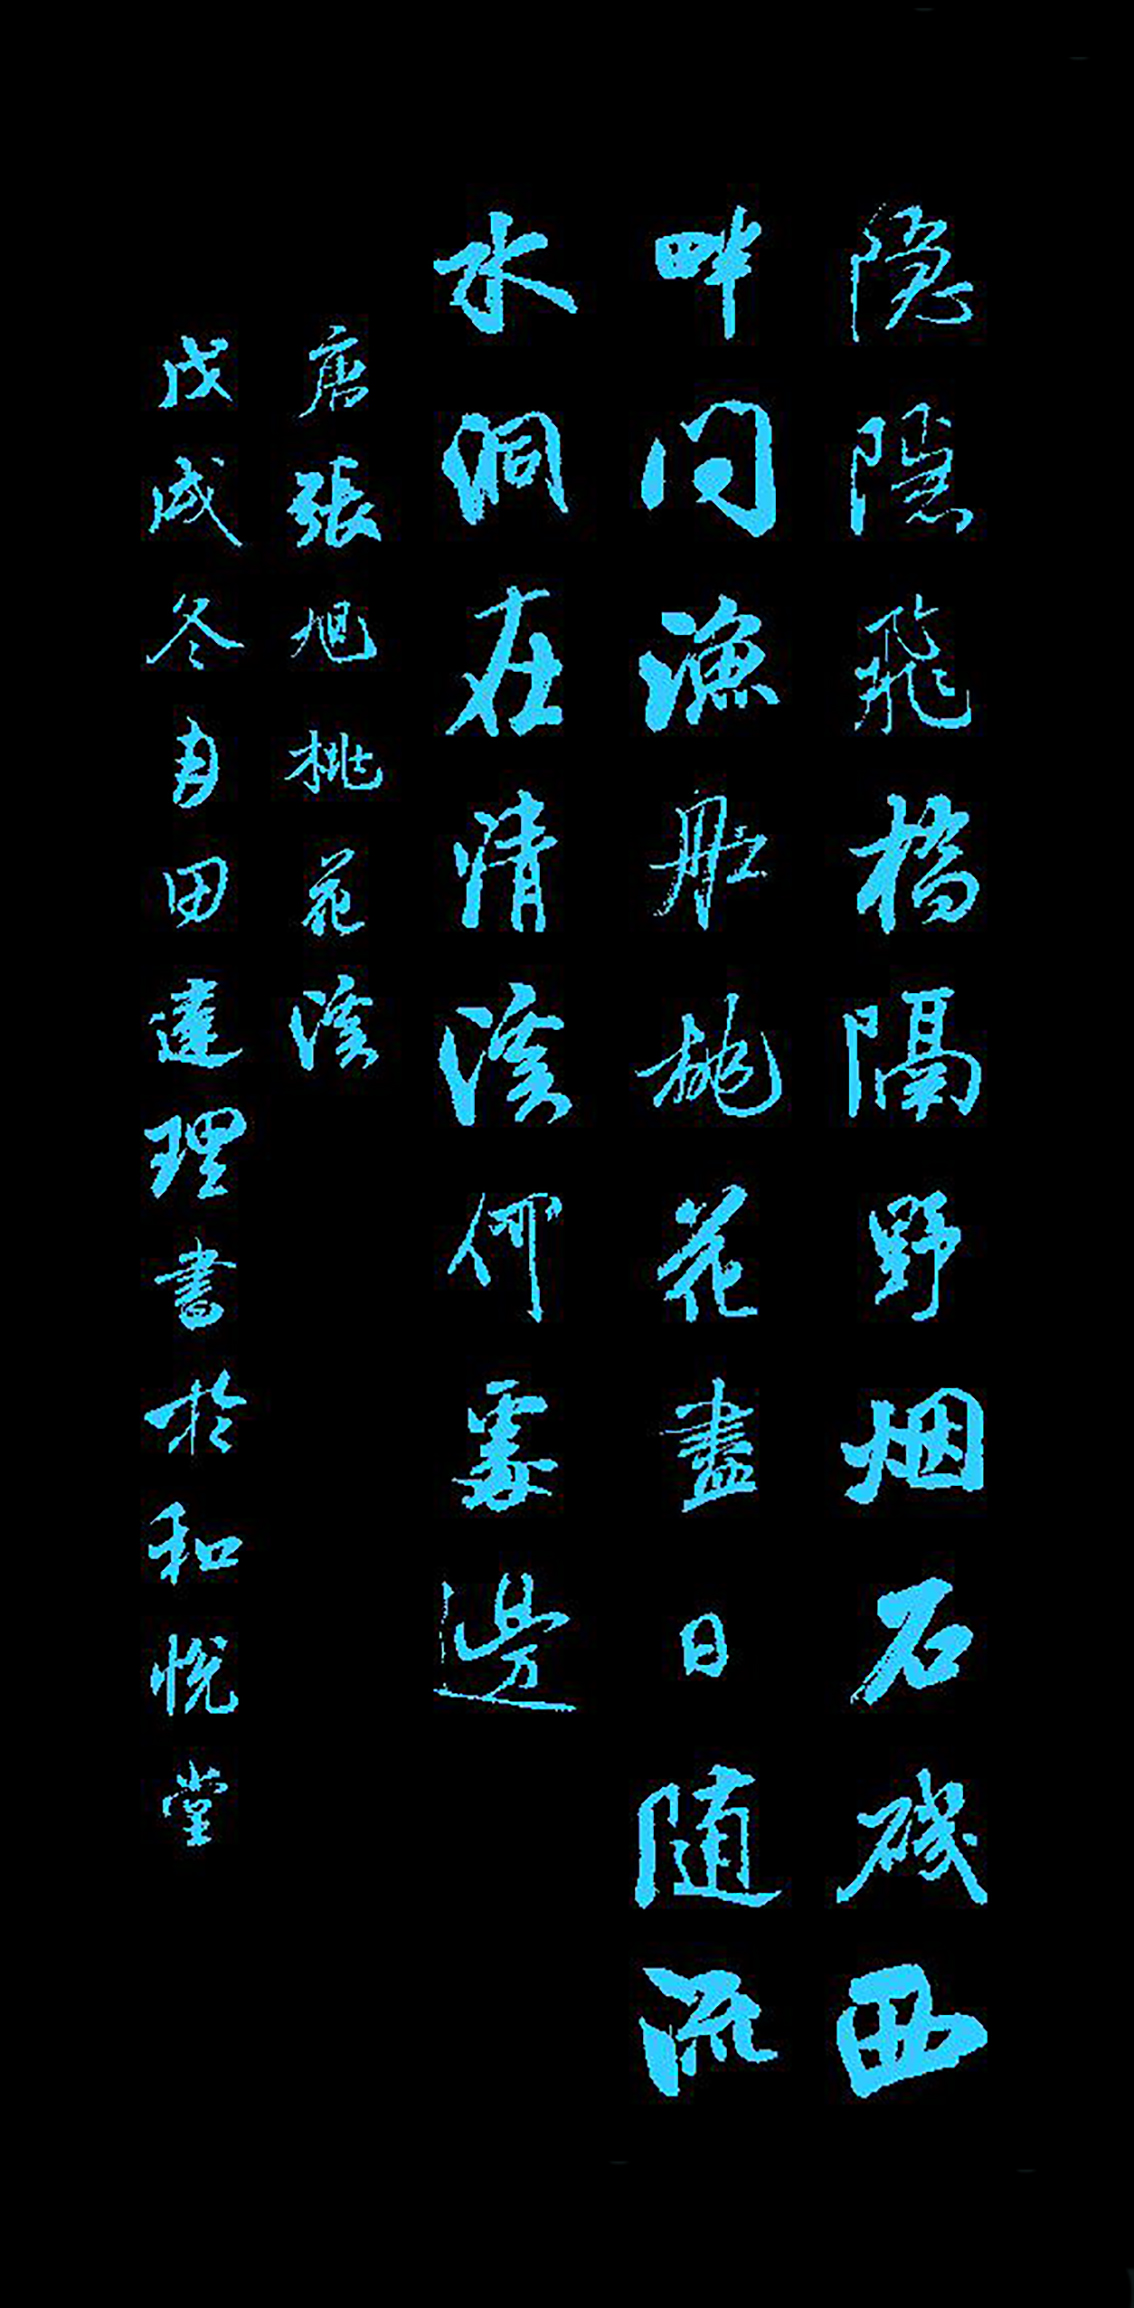 隐隱飛橋隔野烟石磯西
畔问漁舡桃花盡日随流
水洞在清溪何處邊
唐張旭桃花溪
戊戌冬月田達理書於和悅堂